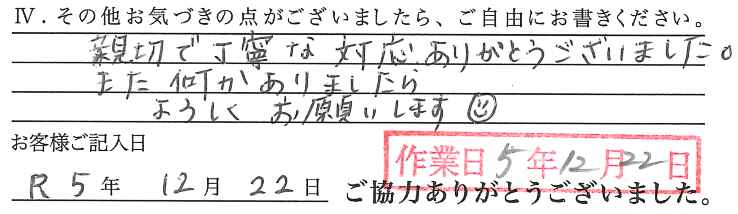 Ⅳ．その他お気づきの点がございましたら、ご自由にお書きください。
親切で丁寧な対応ありがとうございました。
また何かありましたら
よろしくお願いします☺
お客様ご記入日
作業日 5年12月22日
R5年 12月 22日 ご協力ありがとうございました。